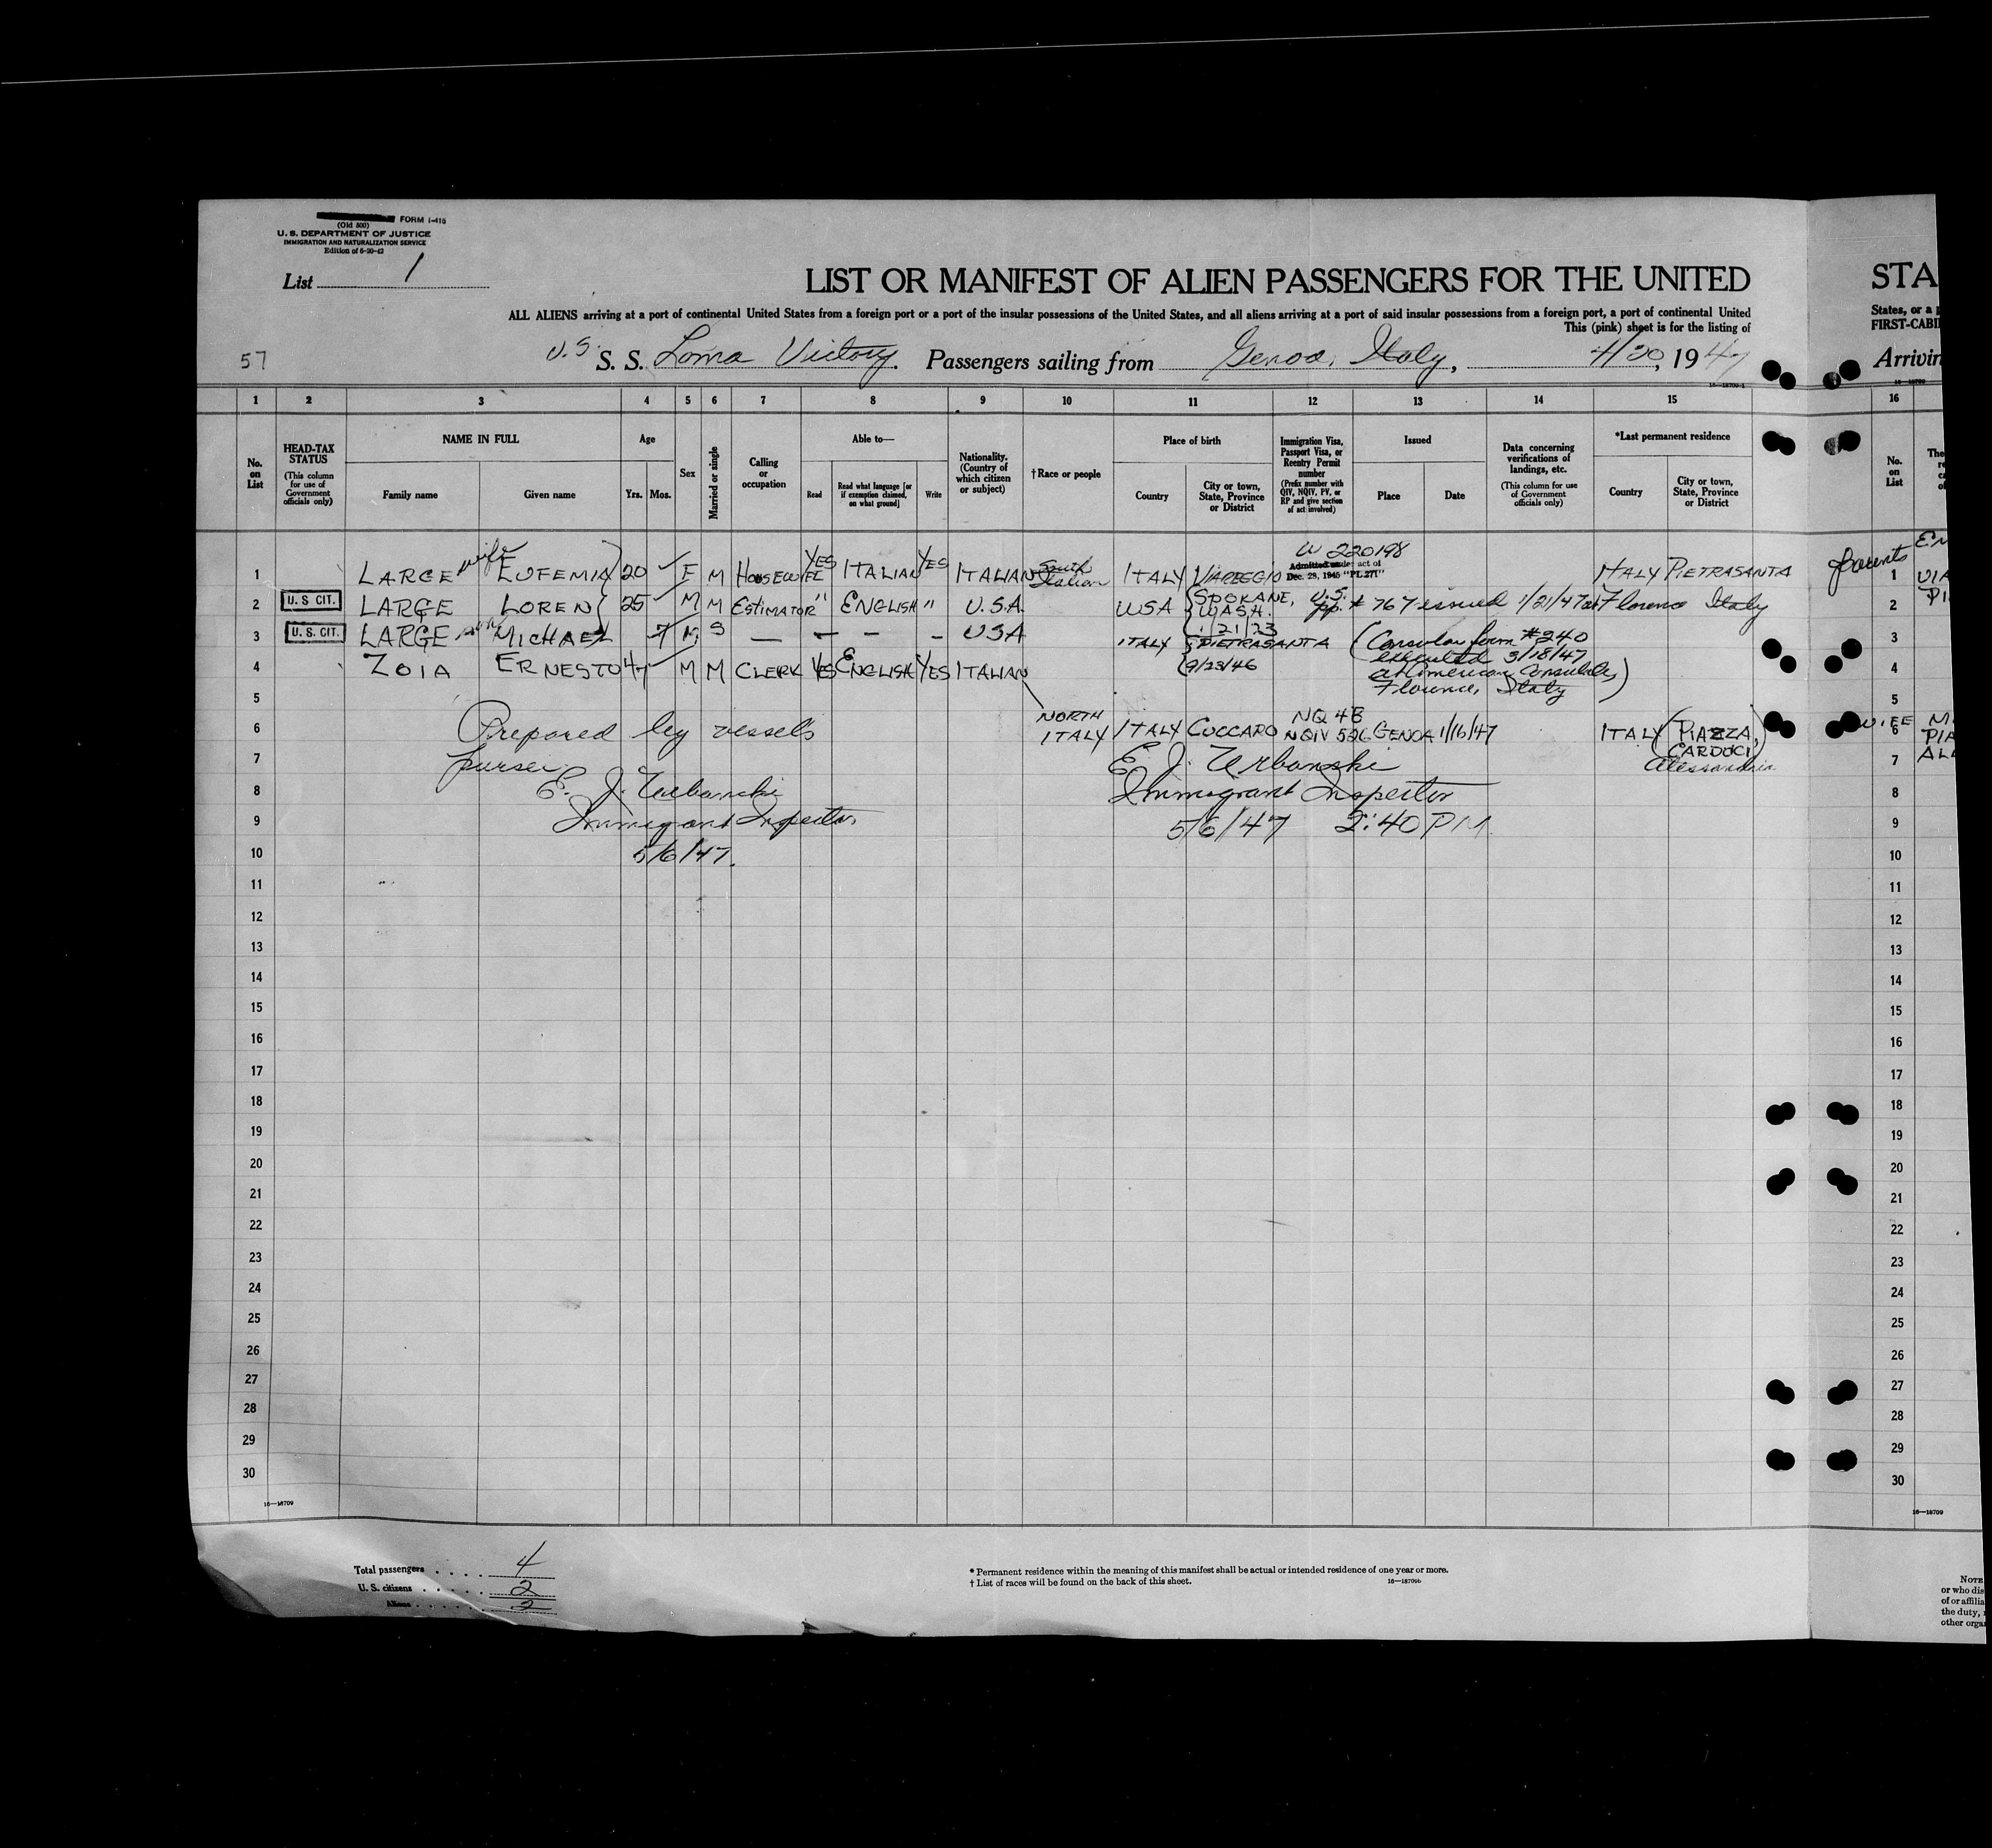 FORM I-415
(Old 500)
U. S. DEPARTMENT OF JUSTICE
IMMIGRATION AND NATURALIZATION SERVICE
Edition of 6-20-42
List 1
LIST OR MANIFEST OF ALIEN PASSENGERS FOR THE UNITED STA
ALL ALIENS arriving at a port of continental United States from a foreign port or a port of the insular possessions of the United States, and all aliens arriving at a port of said insular possessions from a foreign port, a port of continental United States, or a p
This (pink) sheet is for the listing of FIRST-CABI
57
U.S. S. S. Loma Victory. Passengers sailing from Genoa, Italy, 4/20, 1947 Arrivin
16—18709-1
1 2 3 4 5 6 7 8 9 10 11 12 13 14 15 16
No. on List
HEAD-TAX STATUS (This column for use of Government officials only)
NAME IN FULL
Family name Given name
Age
Yrs. Mos.
Sex
Married or single
Calling or occupation
Able to—
Read Read what language [or if exemption claimed, on what ground] Write
Nationality. (Country of which citizen or subject)
†Race or people
Place of birth
Country City or town, State, Province or District
Immigration Visa, Passport Visa, or Reentry Permit number (Prefix number with QIV, NQIV, PV, or RP and give section of act involved)
Issued
Place Date
Data concerning verifications of landings, etc. (This column for use of Government officials only)
*Last permanent residence
Country City or town, State, Province or District
No. on List
1 LARGE wife EUFEMIA 20 F M HOUSEWIFE YES ITALIAN YES ITALIAN South Italian ITALY VIAREGGIO W 220198 Admitted under act of Dec. 28, 1945 "PL 271" ITALY PIETRASANTA parents 1
2 U. S CIT. LARGE LOREN 25 M M ESTIMATOR " ENGLISH " U.S.A. USA SPOKANE, WASH. 1/21/23 U.S. pp. # 767 issued 1/21/47 at Florence Italy 2
3 U. S. CIT. LARGE son MICHAEL 7 M S — — — — USA ITALY PIETRASANTA 9/23/46 (Consular form #240 executed 3/18/47 at American Consulate, Florence, Italy) 3
4 ZOIA ERNESTO 47 M M CLERK YES ENGLISH YES ITALIAN 4
5 5
6 Prepared by vessels NORTH ITALY ITALY CUCCARO NQ 4B NQIV 526 GENOA 1/16/47 ITALY (PIAZZA, CARDUCI) Alessandria WIFE 6
7 purser. E. J. Urbanski 7
8 E. J. Urbanski Immigrant Inspector 8
9 Immigrant Inspector 5/6/47 2:40 PM. 9
10 5/6/47. 10
11 11
12 12
13 13
14 14
15 15
16 16
17 17
18 18
19 19
20 20
21 21
22 22
23 23
24 24
25 25
26 26
27 27
28 28
29 29
30 30
16—18709 16—18709
Total passengers 4
U. S. citizens 2
Aliens 2
* Permanent residence within the meaning of this manifest shall be actual or intended residence of one year or more.
† List of races will be found on the back of this sheet. 16—18709b
NOTE
or who dis
of or affilia
the duty,
other orga